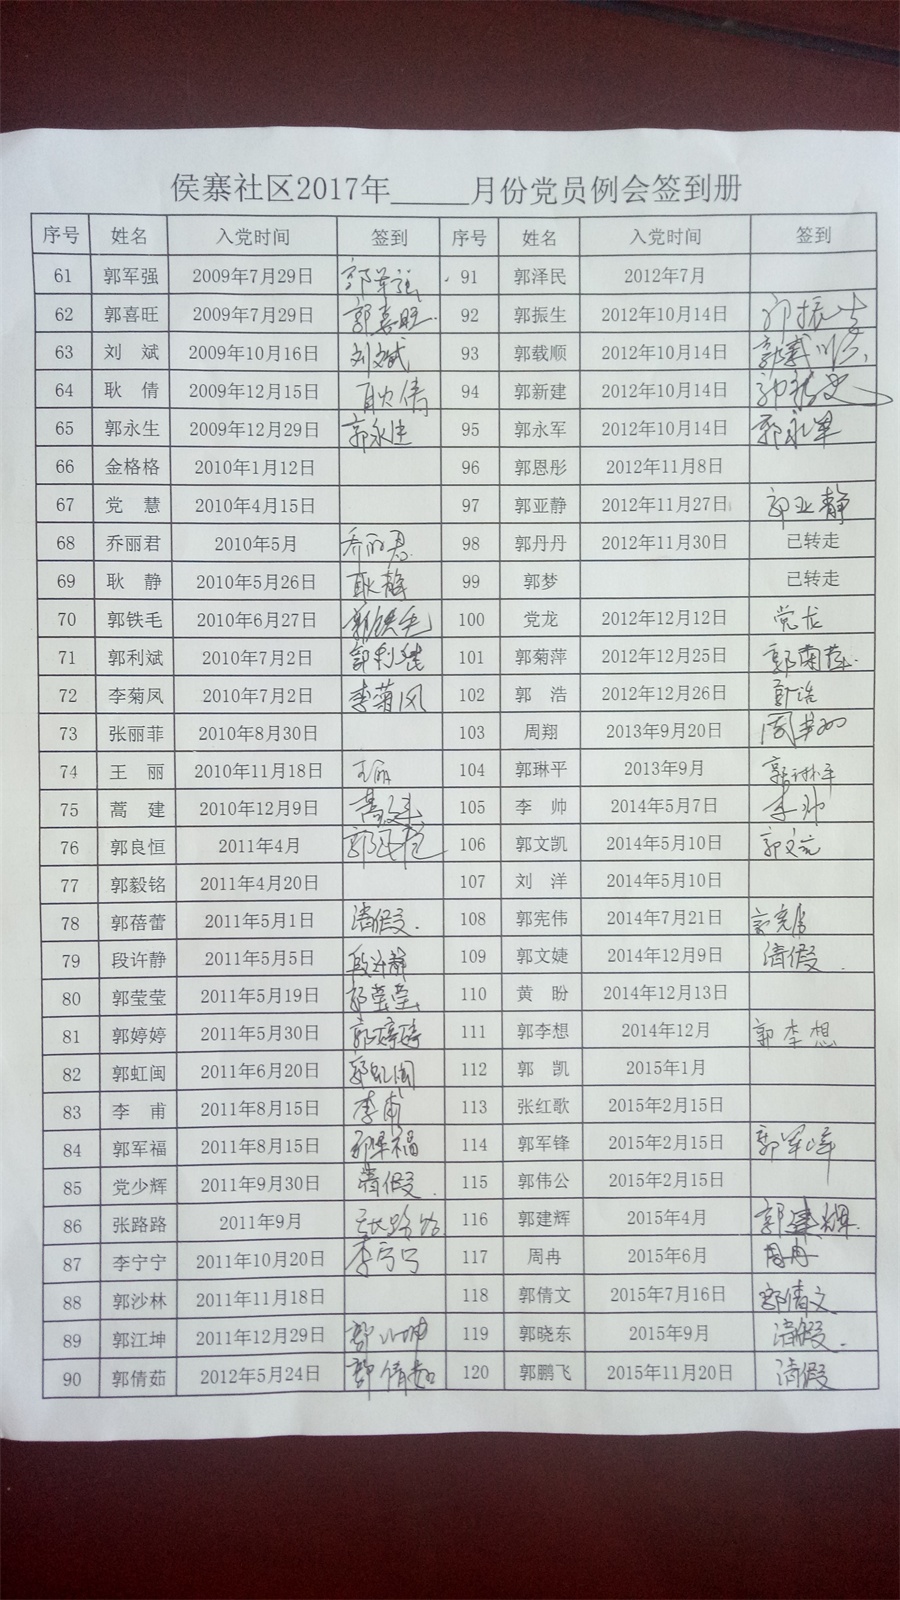 侯寨社区2017年_____月份党员例会签到册
序号 姓名 入党时间 签到 序号 姓名 入党时间 签到
61 郭军强 2009年7月29日 郭军强 91 郭泽民 2012年7月
62 郭喜旺 2009年7月29日 郭喜旺 92 郭振生 2012年10月14日 郭振生
63 刘 斌 2009年10月16日 刘斌 93 郭载顺 2012年10月14日 郭载顺
64 耿 倩 2009年12月15日 耿倩 94 郭新建 2012年10月14日
65 郭永生 2009年12月29日 郭永生 95 郭永军 2012年10月14日 郭永军
66 金格格 2010年1月12日 96 郭恩彤 2012年11月8日
67 党 慧 2010年4月15日 97 郭亚静 2012年11月27日 郭亚静
68 乔丽君 2010年5月 乔丽君 98 郭丹丹 2012年11月30日 已转走
69 耿 静 2010年5月26日 耿静 99 郭梦 已转走
70 郭铁毛 2010年6月27日 郭铁毛 100 党龙 2012年12月12日 党龙
71 郭利斌 2010年7月2日 101 郭菊萍 2012年12月25日 郭菊萍
72 李菊凤 2010年7月2日 李菊凤 102 郭 浩 2012年12月26日 郭浩
73 张丽菲 2010年8月30日 103 周翔 2013年9月20日
74 王 丽 2010年11月18日 王丽 104 郭琳平 2013年9月 郭琳平
75 蒿 建 2010年12月9日 蒿建 105 李 帅 2014年5月7日 李帅
76 郭良恒 2011年4月 106 郭文凯 2014年5月10日
77 郭毅铭 2011年4月20日 107 刘 洋 2014年5月10日
78 郭蓓蕾 2011年5月1日 请假 108 郭宪伟 2014年7月21日
79 段许静 2011年5月5日 段许静 109 郭文婕 2014年12月9日 请假
80 郭莹莹 2011年5月19日 郭莹莹 110 黄 盼 2014年12月13日
81 郭婷婷 2011年5月30日 郭婷婷 111 郭李想 2014年12月 郭李想
82 郭虹闽 2011年6月20日 郭虹闽 112 郭 凯 2015年1月
83 李 甫 2011年8月15日 李甫 113 张红歌 2015年2月15日
84 郭军福 2011年8月15日 郭军福 114 郭军锋 2015年2月15日 郭军峰
85 党少辉 2011年9月30日 请假 115 郭伟公 2015年2月15日
86 张路路 2011年9月 张路路 116 郭建辉 2015年4月 郭建辉
87 李宁宁 2011年10月20日 李宁宁 117 周冉 2015年6月 周冉
88 郭沙林 2011年11月18日 118 郭倩文 2015年7月16日 郭倩文
89 郭江坤 2011年12月29日 郭江坤 119 郭晓东 2015年9月 请假
90 郭倩茹 2012年5月24日 郭倩茹 120 郭鹏飞 2015年11月20日 请假